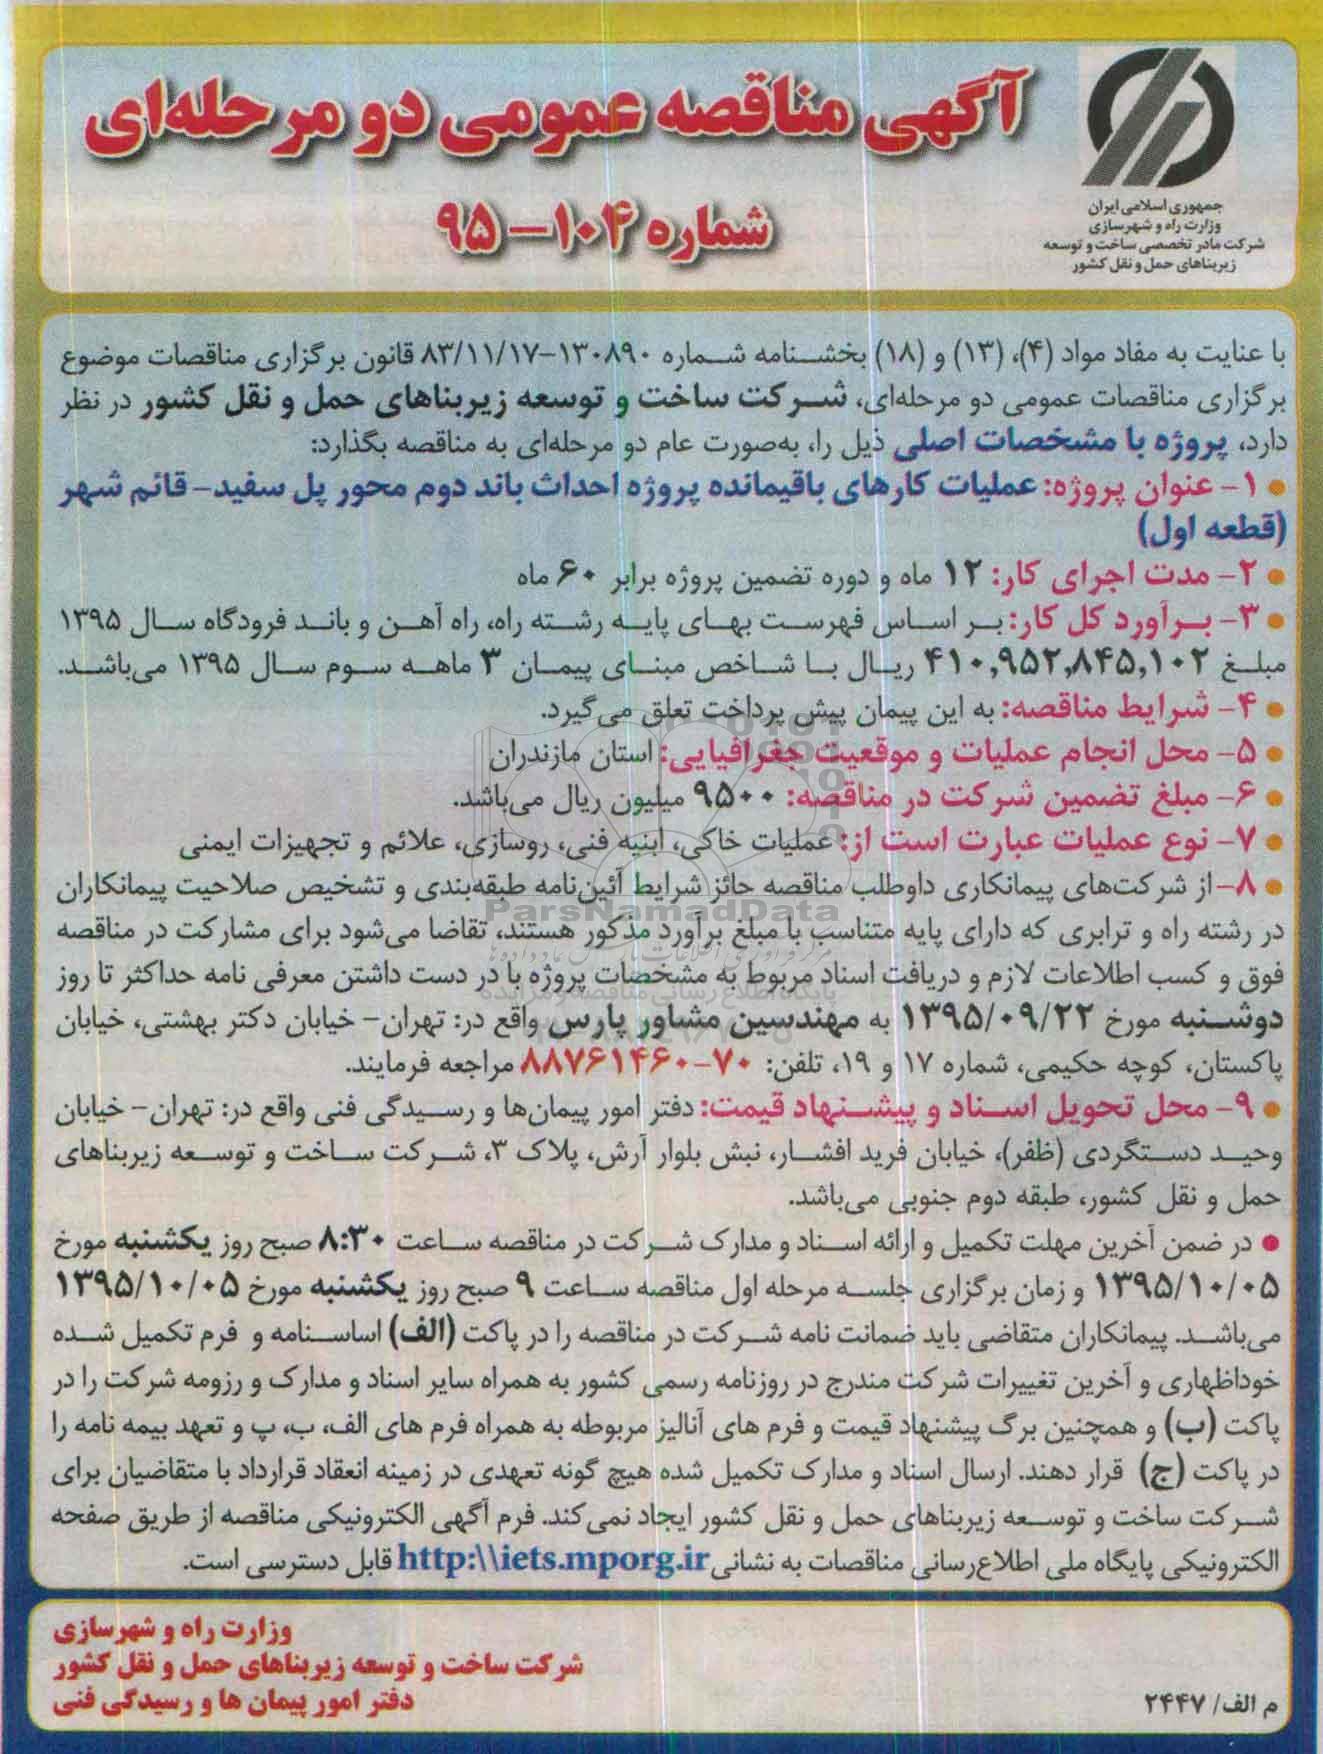 جمهوری اسلامی ایران
وزارت راه و شهرسازی
شرکت مادر تخصصی ساخت و توسعه
زیربناهای حمل و نقل کشور
آگهی مناقصه عمومی دو مرحله‌ای
شماره ۱۰۴–۹۵
با عنایت به مفاد مواد (۴)، (۱۳) و (۱۸) بخشنامه شماره ۱۳۰۸۹۰–۸۳/۱۱/۱۷ قانون برگزاری مناقصات موضوع
برگزاری مناقصات عمومی دو مرحله‌ای، شرکت ساخت و توسعه زیربناهای حمل و نقل کشور در نظر
دارد، پروژه با مشخصات اصلی ذیل را، به‌صورت عام دو مرحله‌ای به مناقصه بگذارد:
● ۱– عنوان پروژه: عملیات کارهای باقیمانده پروژه احداث باند دوم محور پل سفید– قائم شهر
(قطعه اول)
● ۲– مدت اجرای کار: ۱۲ ماه و دوره تضمین پروژه برابر ۶۰ ماه
● ۳– برآورد کل کار: بر اساس فهرست بهای پایه رشته راه، راه آهن و باند فرودگاه سال ۱۳۹۵
مبلغ ۴۱۰,۹۵۲,۸۴۵,۱۰۲ ریال با شاخص مبنای پیمان ۳ ماهه سوم سال ۱۳۹۵ می‌باشد.
● ۴– شرایط مناقصه: به این پیمان پیش پرداخت تعلق می‌گیرد.
● ۵– محل انجام عملیات و موقعیت جغرافیایی: استان مازندران
● ۶– مبلغ تضمین شرکت در مناقصه: ۹۵۰۰ میلیون ریال می‌باشد.
● ۷– نوع عملیات عبارت است از: عملیات خاکی، ابنیه فنی، روسازی، علائم و تجهیزات ایمنی
● ۸– از شرکت‌های پیمانکاری داوطلب مناقصه حائز شرایط آئین‌نامه طبقه‌بندی و تشخیص صلاحیت پیمانکاران
در رشته راه و ترابری که دارای پایه متناسب با مبلغ برآورد مذکور هستند، تقاضا می‌شود برای مشارکت در مناقصه
فوق و کسب اطلاعات لازم و دریافت اسناد مربوط به مشخصات پروژه با در دست داشتن معرفی نامه حداکثر تا روز
دوشنبه مورخ ۱۳۹۵/۰۹/۲۲ به مهندسین مشاور پارس واقع در: تهران– خیابان دکتر بهشتی، خیابان
پاکستان، کوچه حکیمی، شماره ۱۷ و ۱۹، تلفن: ۷۰–۸۸۷۶۱۴۶۰ مراجعه فرمایند.
● ۹– محل تحویل اسناد و پیشنهاد قیمت: دفتر امور پیمان‌ها و رسیدگی فنی واقع در: تهران– خیابان
وحید دستگردی (ظفر)، خیابان فرید افشار، نبش بلوار آرش، پلاک ۳، شرکت ساخت و توسعه زیربناهای
حمل و نقل کشور، طبقه دوم جنوبی می‌باشد.
● در ضمن آخرین مهلت تکمیل و ارائه اسناد و مدارک شرکت در مناقصه ساعت ۸:۳۰ صبح روز یکشنبه مورخ
۱۳۹۵/۱۰/۰۵ و زمان برگزاری جلسه مرحله اول مناقصه ساعت ۹ صبح روز یکشنبه مورخ ۱۳۹۵/۱۰/۰۵
می‌باشد. پیمانکاران متقاضی باید ضمانت نامه شرکت در مناقصه را در پاکت (الف) اساسنامه و فرم تکمیل شده
خوداظهاری و آخرین تغییرات شرکت مندرج در روزنامه رسمی کشور به همراه سایر اسناد و مدارک و رزومه شرکت را در
پاکت (ب) و همچنین برگ پیشنهاد قیمت و فرم های آنالیز مربوطه به همراه فرم های الف، ب، پ و تعهد بیمه نامه را
در پاکت (ج) قرار دهند. ارسال اسناد و مدارک تکمیل شده هیچ گونه تعهدی در زمینه انعقاد قرارداد با متقاضیان برای
شرکت ساخت و توسعه زیربناهای حمل و نقل کشور ایجاد نمی‌کند. فرم آگهی الکترونیکی مناقصه از طریق صفحه
الکترونیکی پایگاه ملی اطلاع‌رسانی مناقصات به نشانی http:\\iets.mporg.ir قابل دسترسی است.
وزارت راه و شهرسازی
شرکت ساخت و توسعه زیربناهای حمل و نقل کشور
دفتر امور پیمان ها و رسیدگی فنی
م الف/ ۲۴۴۷
ParsNamadData
پایگاه اطلاع رسانی مناقصه و مزایده